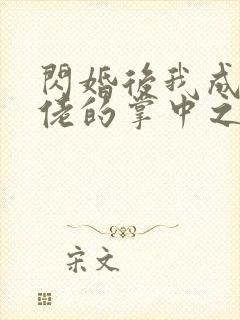 閃婚後我成
佬的掌中之
宋文